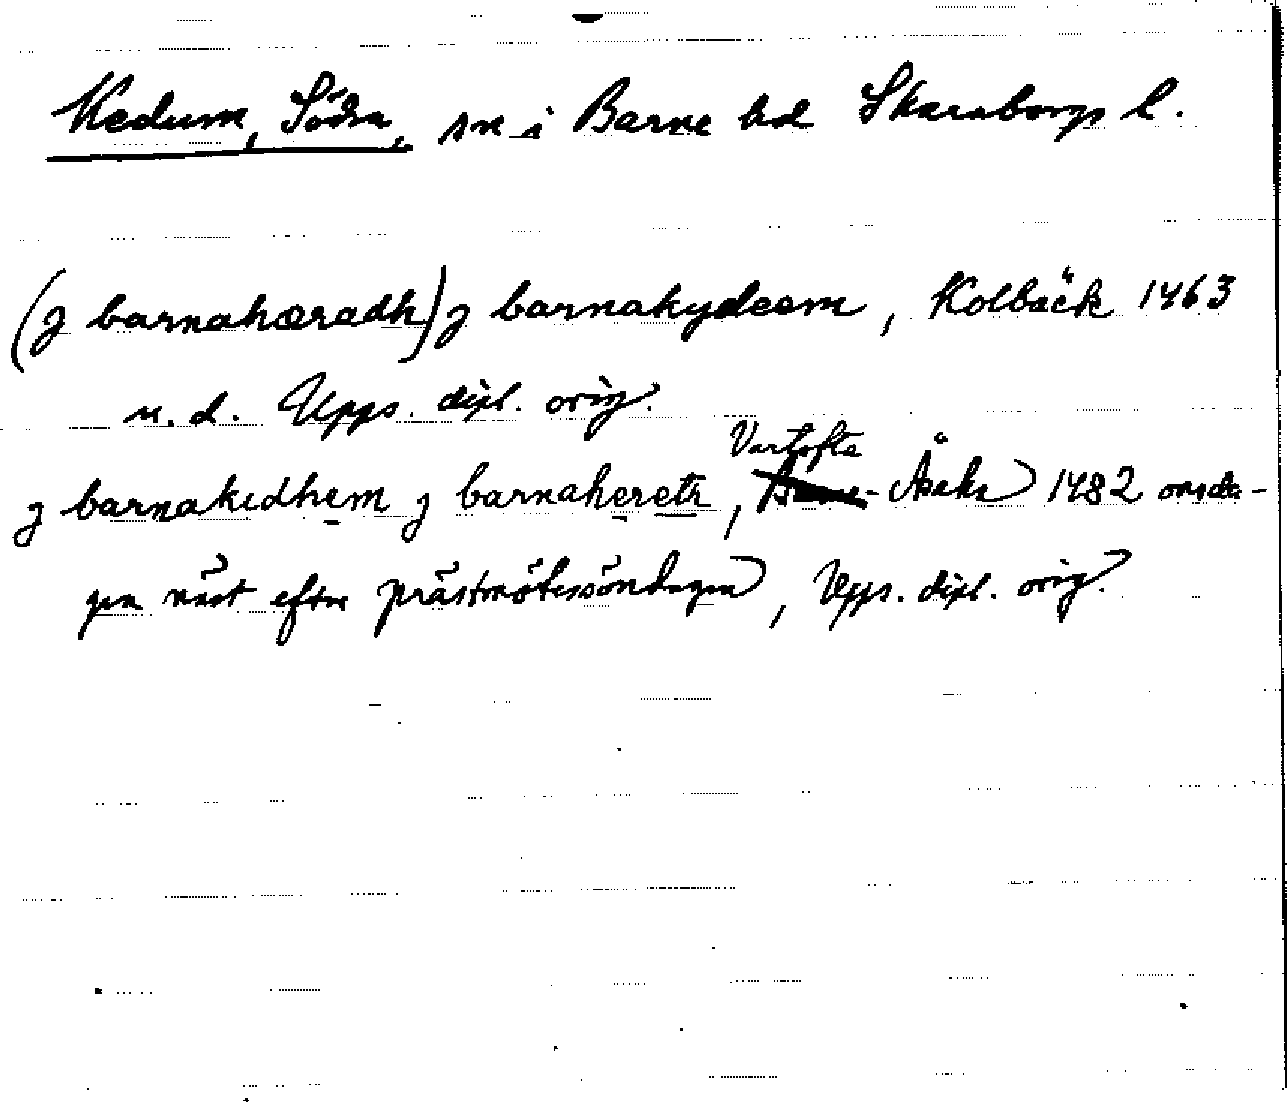 Kedum, Södra, sn i Barne hd Skaraborgs l.
(j barnahæradh) j barnakydeem, Kolbäck 1463
u. d. Upps. dipl. orig.
j barnakidhem j barnaheretz, Vartofta-Åsaka 1482 onsda-
gen näst efter prästmötessöndagen, Upps. dipl. orig.